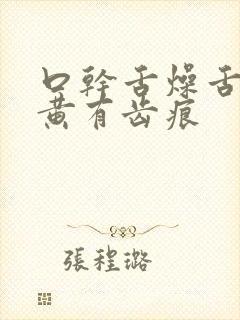 口幹舌燥舌
黄有齿痕
張程璐